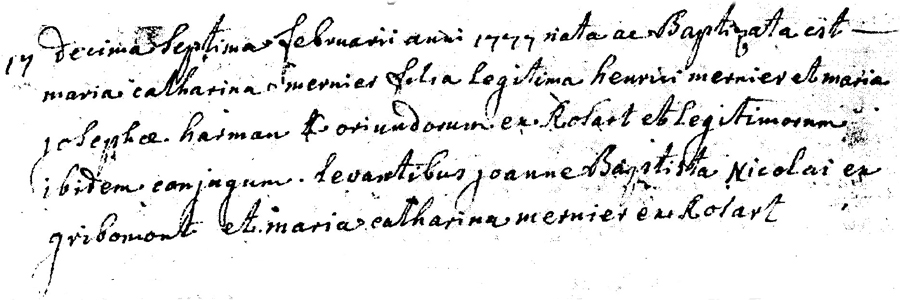 17 decima septima februarii anni 1777 nata ac Baptizata est
maria catharina mernier filia legitima henrici mernier et maria
josephæ harman oriundorum ex Rosart et legitimorum
ibidem conjugum. levantibus joanne Baptista Nicolai ex
gribomont et maria catharina mernier ex Rosart